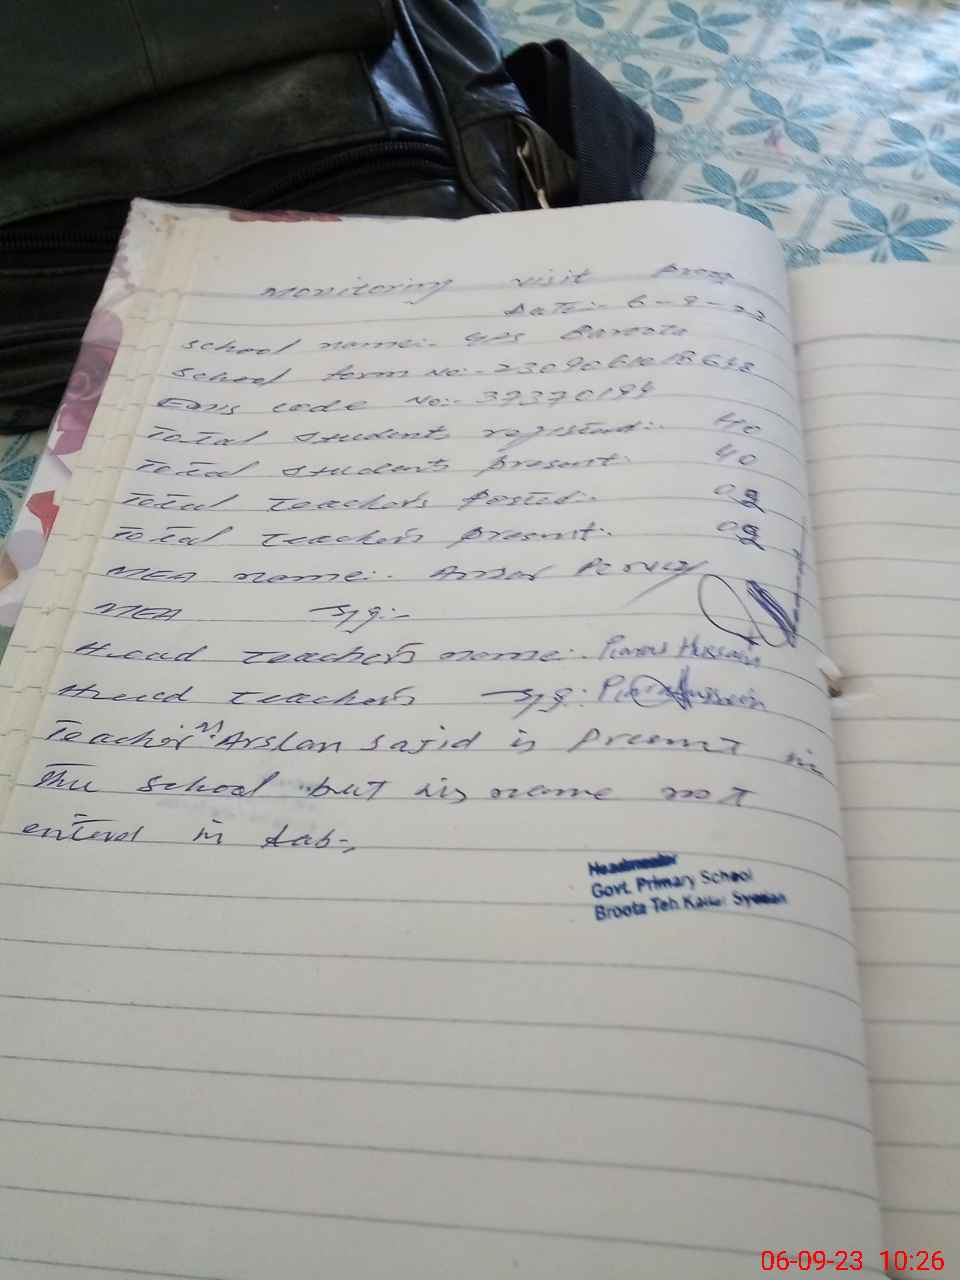 Monitoring visit prog
Date:- 6-9-23
School name:- GPS Baroota
School form No:- 2309061018648
Emis code No:- 37370194
Total students registed:- 40
Total students present:- 40
Total teachers posted:- 02
Total teachers present:- 02
MEA name:- Ansar Pervez
MEA sig:-
Head teachers name:- Hussain
Head teachers sig: Hussain
Teacher M. Arslan Sajid is present in
the school but his name not
entered in tab-,
Headmaster
Govt. Primary School
Broota Teh Kallar Syedan
06-09-23 10:26